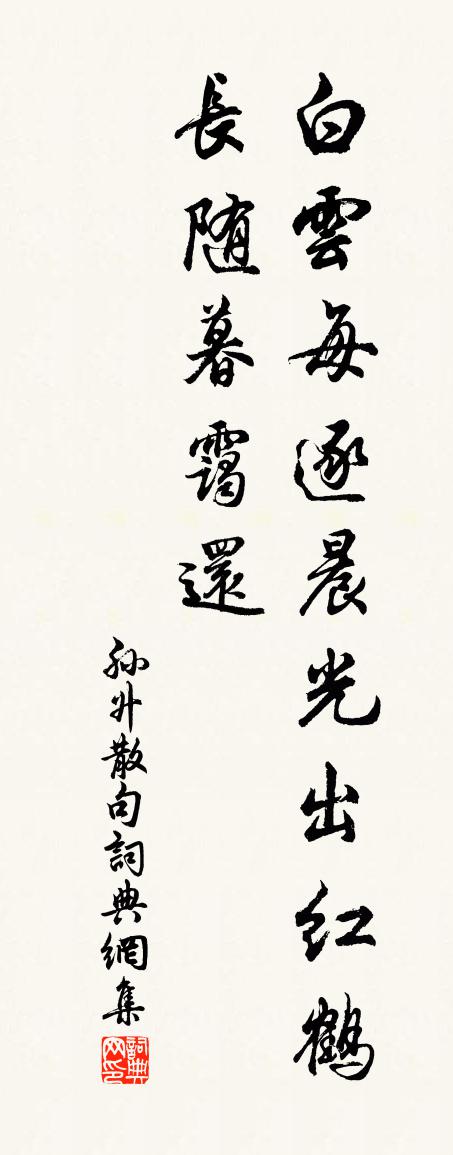 白雲每逐晨光出紅鶴
長随暮靄還
孙升散句詞典網集
詞典网印